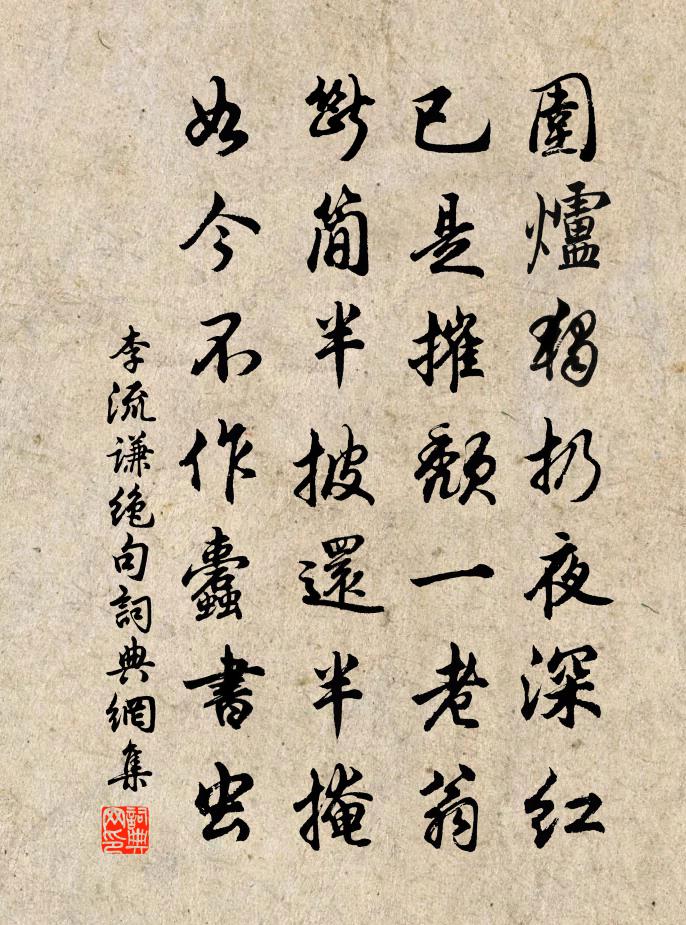 圍爐獨扔夜深紅
已是摧頹一老翁
斷簡半披還半掩
如今不作蠹書虫
李流謙絶句詞典網集
詞典网印